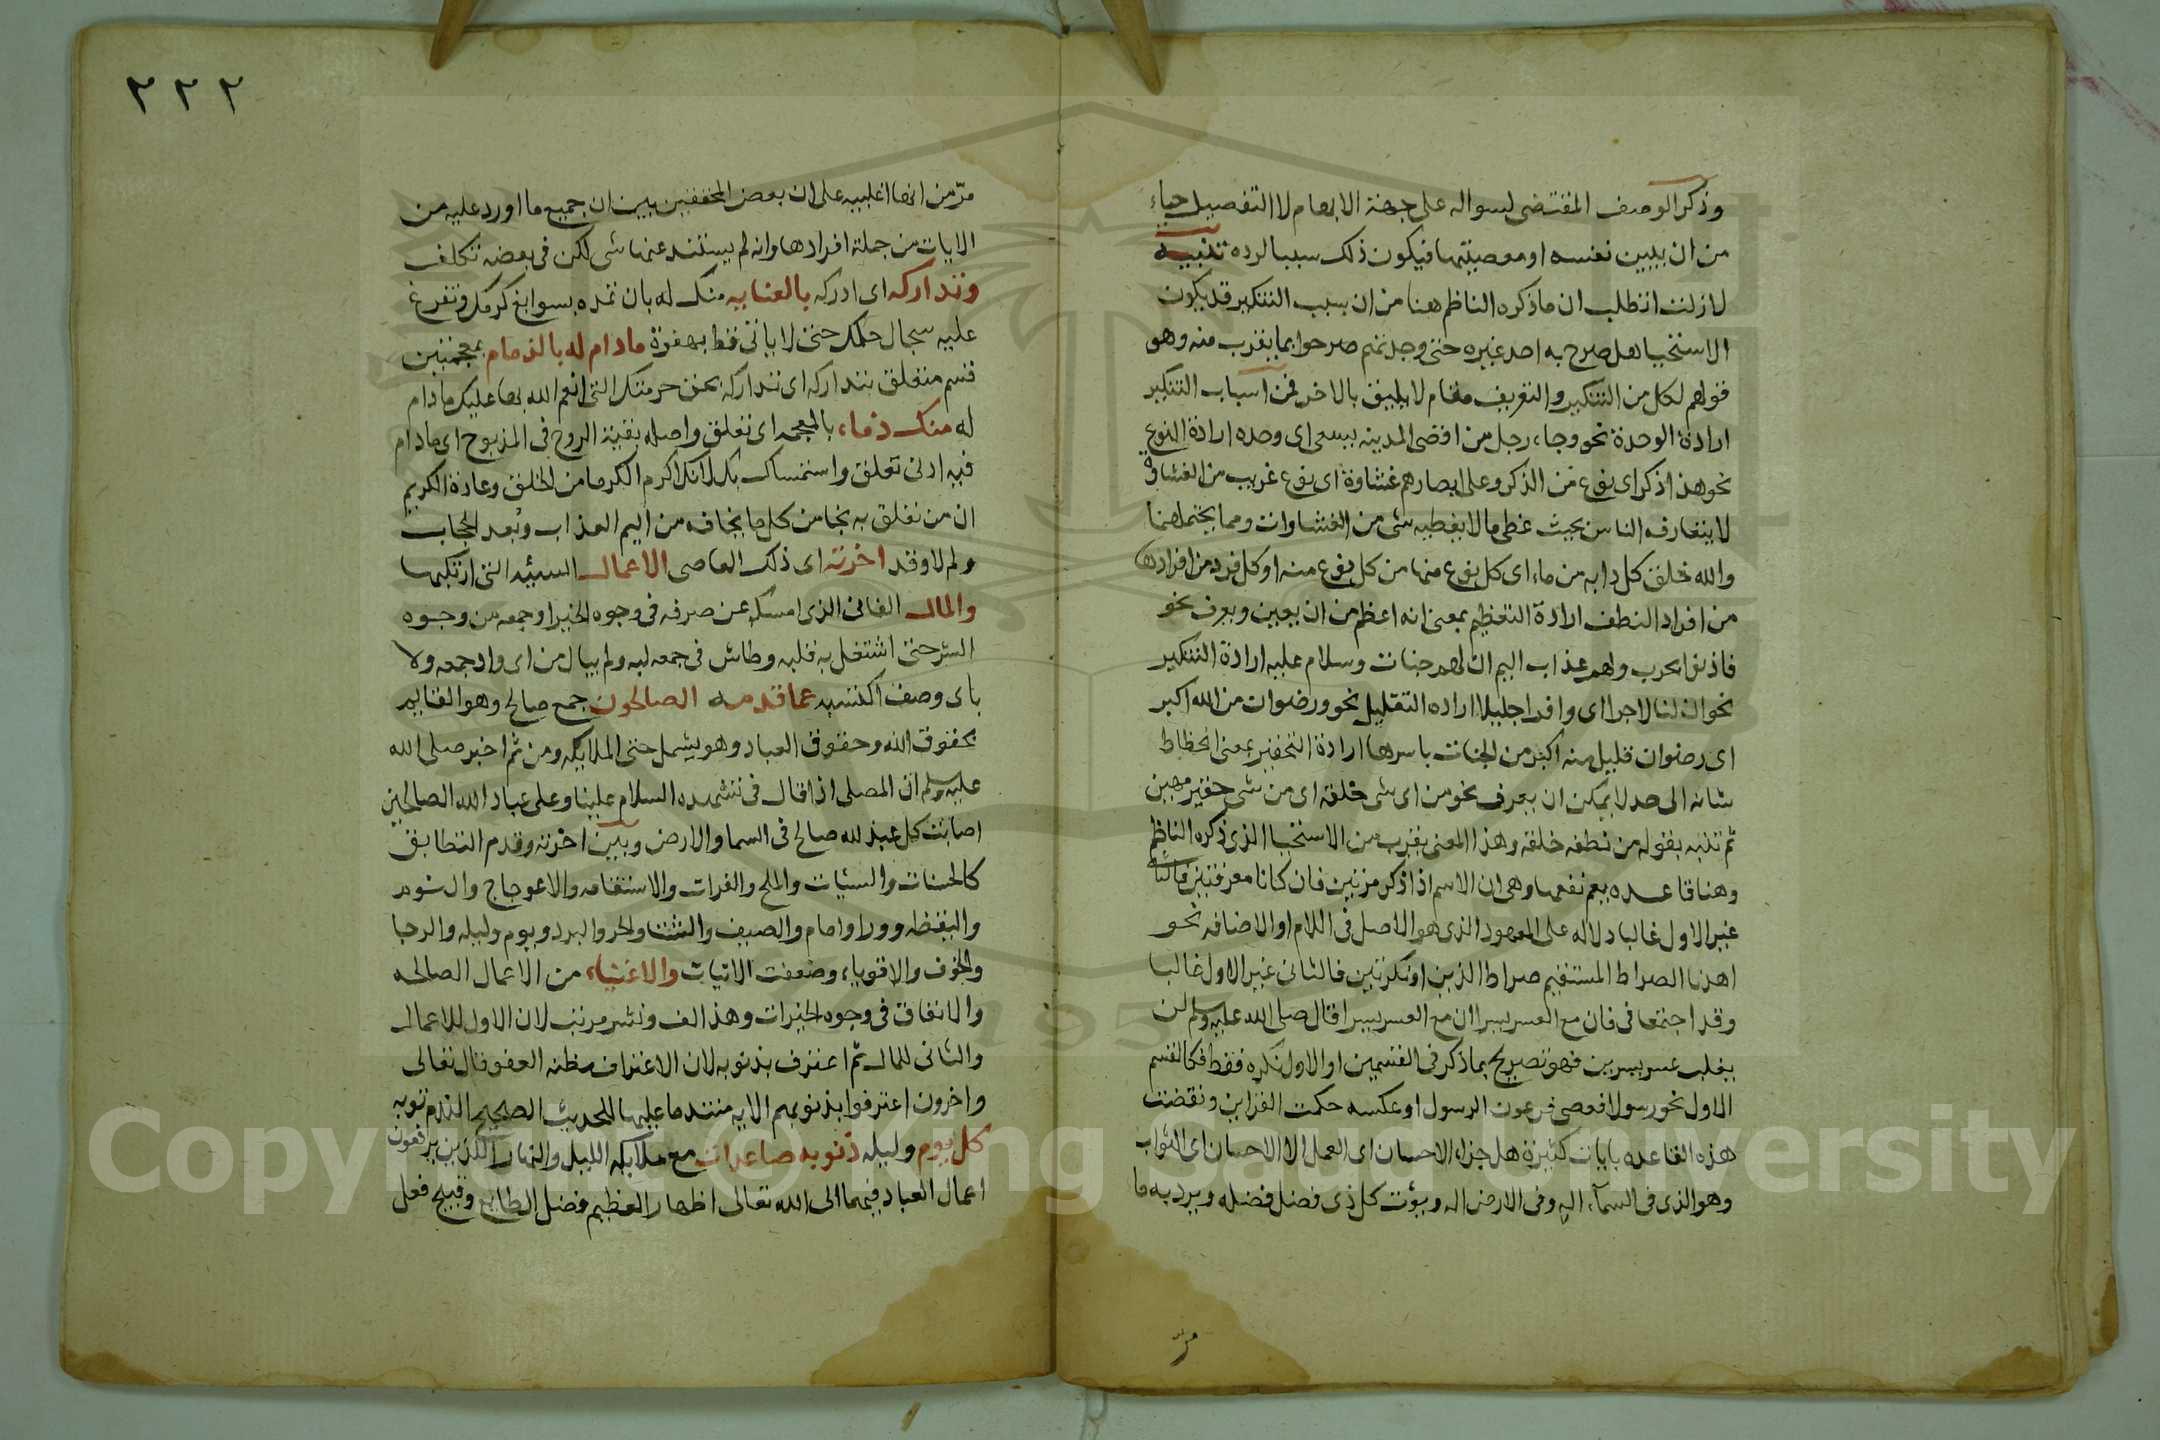 وذكر الوصف المقتضى لسواله على جهة الابهام لا التفصيل حياء
من ان يبين نفسه او معصيتها فيكون ذلك سببا لرده تنبيه
لا زلت اتطلب ان ما ذكره الناظم هنا من ان سبب التنكير قد يكون
الاستحيا هل صرح به احد غيره حتى وجدتهم صرحوا بما يقرب منه وهو
قولهم لكل من التنكير والتعريف مقام لا يليق بالاخر فمن اسباب التنكير
ارادة الوحدة نحو وجاء رجل من اقصى المدينه يسعى اى وحده ارادة النوع
نحو هذا ذكر اى نوع من الذكر وعلى ابصارهم غشاوة اى نوع غريب من الغشاوة
لا يتعارفه الناس بحيث غطى ما لا يغطيه شى من الغشاوات ومما يحتملهما
والله خلق كل دابه من ماء اى كل نوع منها من كل نوع منه او كل فرد من افرادها
من افراد النطف ارادة التعظيم بمعنى انه اعظم من ان يعين ويعرف نحو
فاذنوا بحرب ولهم عذاب اليم ان لهم جنات وسلام عليه ارادة التنكير
نحو ان لنا لاجرا اى وافرا جليلا اراده التقليل نحو ورضوان من الله اكبر
اى رضوان قليل منه اكبر من الجنات باسرها ارادة التحقير بمعنى انحطاط
شانه الى حد لا يمكن ان يعرف نحو من اى شى خلقه اى من شى حقير مهين
ثم تنبه بقوله من نطفه خلقه وهذا المعنى يقرب من الاستحيا الذى ذكره الناظم
وهنا قاعده يعم نفعها وهى ان الاسم اذا ذكر مرتين فان كانا معرفتين فالثانى
غير الاول غالبا دلاله على المعهود الذى هو الاصل فى اللام او الاضافه نحو
اهدنا الصراط المستقيم صراط الذين او نكرتين فالثانى غير الاول غالبا
وقد اجتمعا فى فان مع العسر يسرا ان مع العسر يسرا قال صلى الله عليه وسلم لن
يغلب عسر يسرين فهو تصريح بما ذكر فى القسمين او الاول نكره فقط فكالقسم
الاول نحو رسولا فعصى فرعون الرسول او عكسه حكت القراين ونقضت
هذه القاعده بايات كثيرة هل جزاء الاحسان اى العمل الا الاحسان اى الثواب
وهو الذى فى السماء اله وفى الارض اله ويؤت كل ذى فضل فضله ويرد به ما
مرّ
٢٢٢
مرّ من انها اغلبيه على ان بعض المحققين بين ان جميع ما اورد عليه من
الايات من جملة افرادها وانه لم يستند عنها شى لكن فى بعضه تكلف
وتداركه اى ادركه بالعنايه منك له بان تمده بسوابغ كرمك وتفرغ
عليه سجال حلمك حتى لا ياتى قط بهفوة مادام له بالذمام بمعجمتين
قسم متعلق بتداركه اى تداركه بحق حرمتك التى انعم الله بها عليك مادام
له منك ذماء بالمعجمه اى تعلق واصله بقية الروح فى المذبوح اى مادام
فيه ادنى تعلق واستمساك بك لانك اكرم الكرما من الخلق وعادة الكريم
ان من تعلق به نجا من كل ما يخافه من اليم العذاب وبعد الحجاب
ولم لا وقد اخرته اى ذلك العاصى الاعمال السيئه التى ارتكبها
والمال الفانى الذى امسكه عن صرفه فى وجوه الخير او جمعه من وجوه
الشر حتى اشتغل به قلبه وطاش فى جمعه لبه ولم يبال من اى واد جمعه ولا
باى وصف اكتسبه عما قدمه الصالحون جمع صالح وهو القايم
بحقوق الله وحقوق العباد وهو يشمل حتى الملايكه ومن ثم اخبر صلى الله
عليه وسلم ان المصلى اذا قال فى تشهده السلام علينا وعلى عباد الله الصالحين
اصابت كل عبد لله صالح فى السما والارض وبين اخرته وقدم التطابق
كالحسنات والسيات والملح والفرات والاستقامه والاعوجاج والنوم
واليقظه وورا وامام والصيف والشتا والحر والبرد ويوم وليله والرجا
والخوف والاقوياء وضعفت الاتيات والاغنياء من الاعمال الصالحه
والانفاق فى وجوه الخيرات وهذا لف ونشر مرتب لان الاول للاعمال
والثانى للمال ثم اعترف بذنوبه لان الاعتراف مظنه العفو قال تعالى
واخرون اعترفوا بذنوبهم الايه مستندما عليها للحديث الصحيح الندم توبه
كل يوم وليله ذنوبه صاعدات مع ملايكه الليل والنهار الذين يرفعون
اعمال العباد فيهما الى الله تعالى اظهارا لعظيم فضل الطايع وقبيح فعل
Copyright © King Saud University